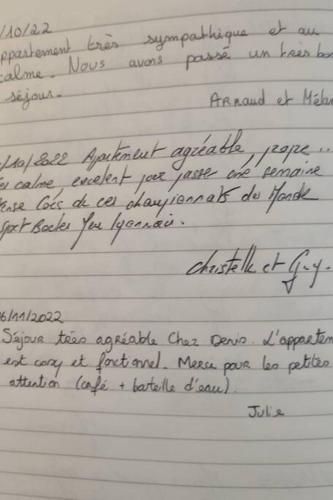 /10/22
appartement très sympathique et au
calme. Nous avons passé un très bon
séjour.
Arnaud et Mélan
/10/2022 Apartement agréable, pope..
très calme, excelent pour passer une semaine
lors de ces championnats du Monde
Sport Boules
Christelle et Guy.
6/11/2022
Séjour très agréable Chez Denis. L'appartem
est cosy et fonctionnel. Merci pour les petites
attention (café + bouteille d'eau).
Julie